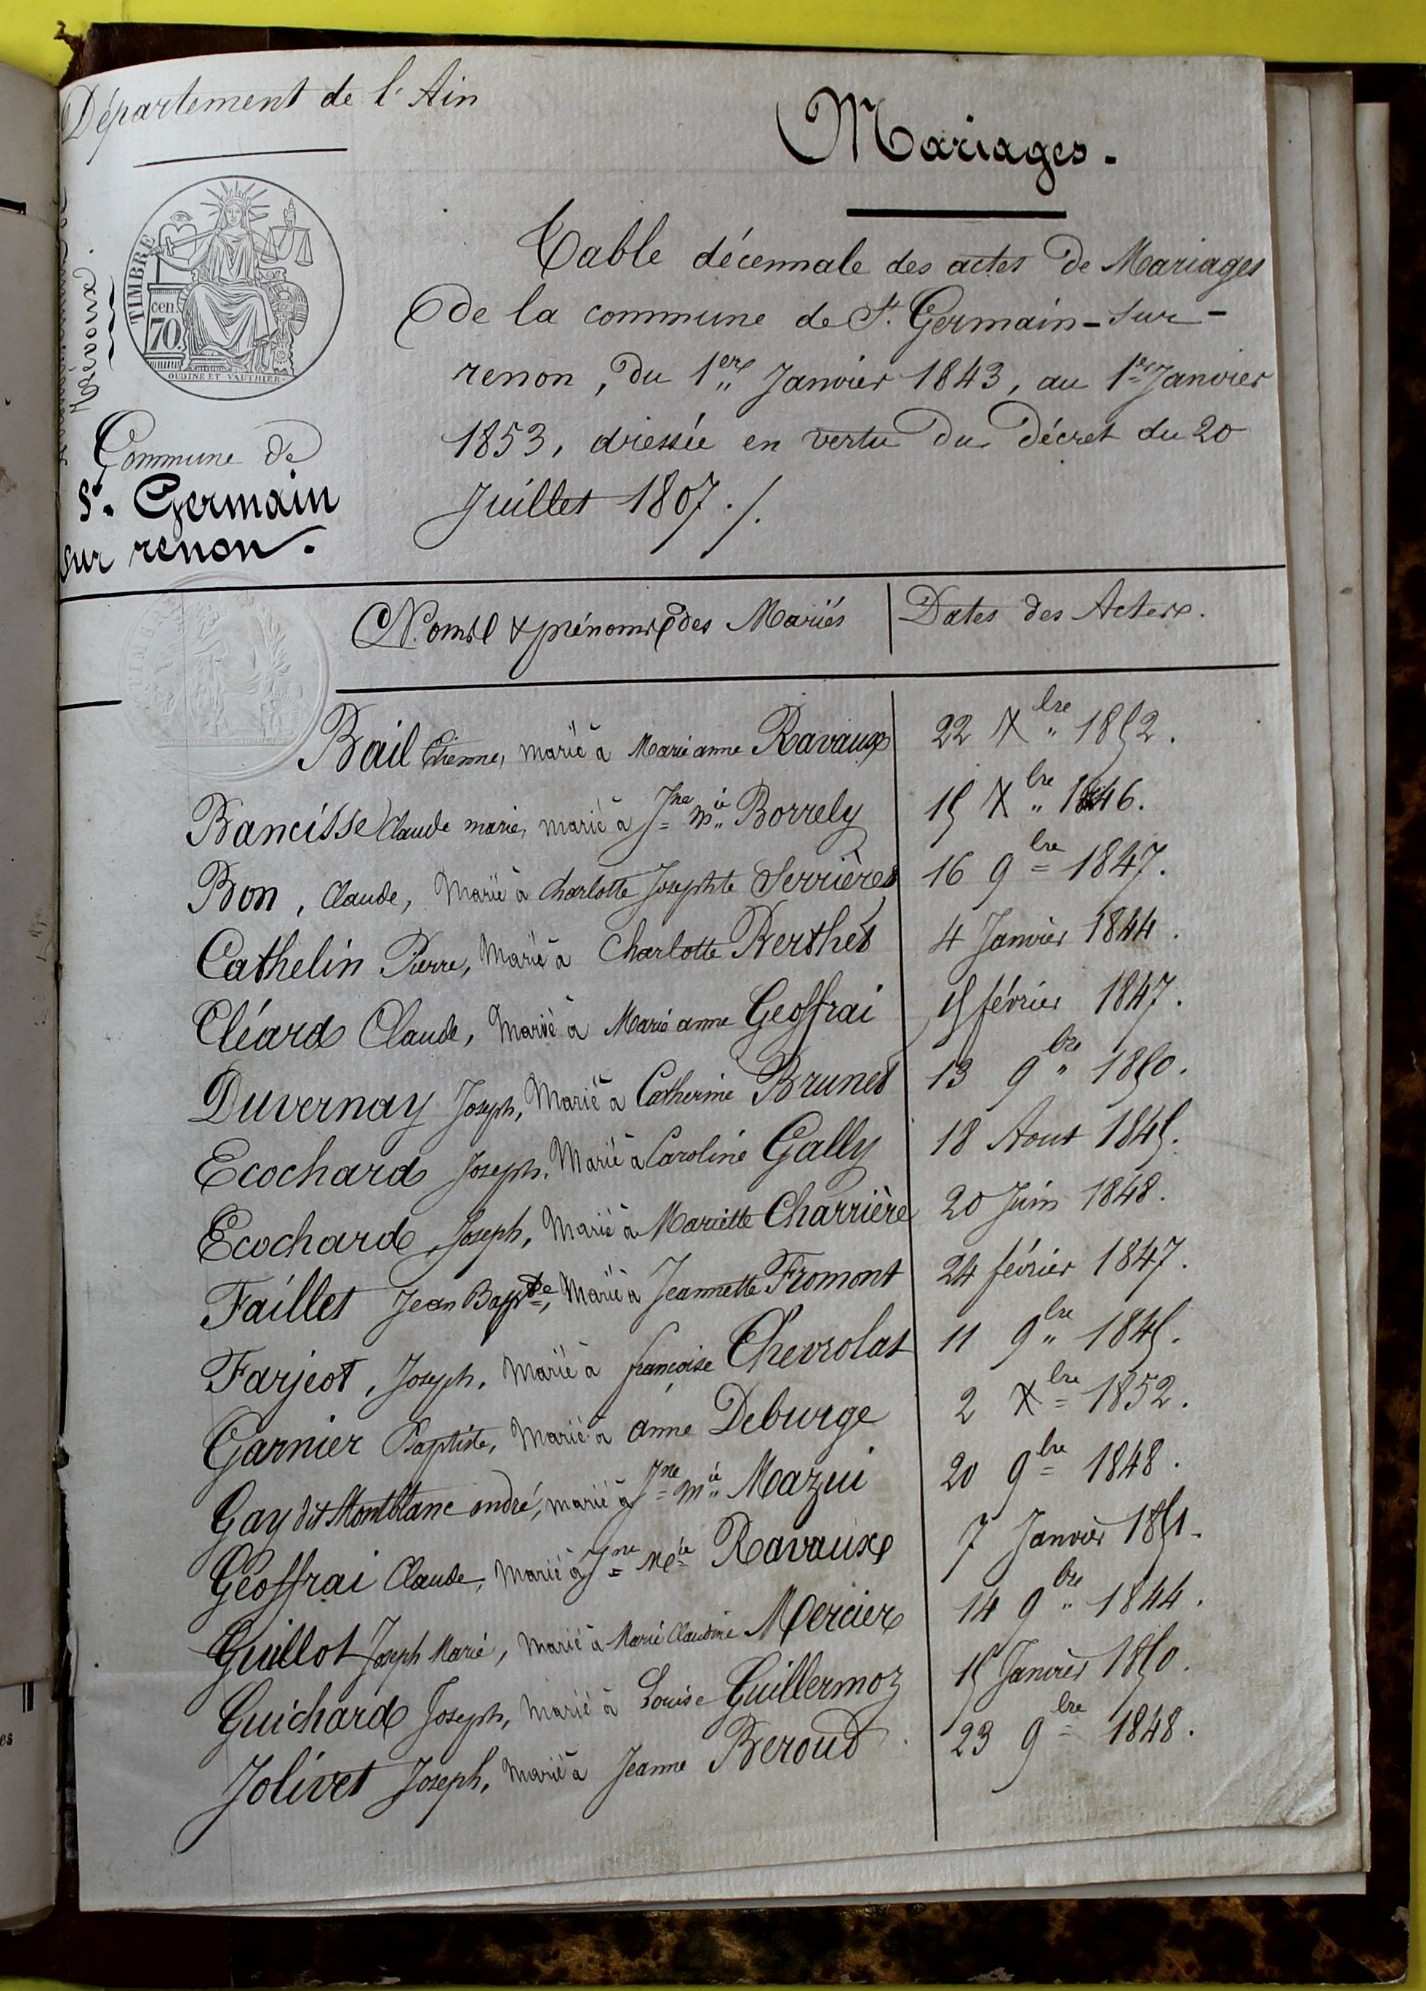 Département de l'Ain
Mariages.
Trévoux.
TIMBRE
cen.
70
OUDINE ET VAUTHIER
Table décennale des actes de Mariages
de la commune de St. Germain-sur-
renon, du 1er Janvier 1843, au 1er Janvier
1853, dressée en vertu du Décret du 20
Juillet 1807./.
Commune de
St. Germain
sur renon.
Noms & prénoms des Mariés | Dates des Actes.
Bail Etienne, marié à Marie anne Ravaux 22 Xbre 1852.
Bancisse Claude marie, marié à Jne Mie Borrely 15 Xbre 1846.
Bon, Claude, Marié à Charlotte Josephte Serrières 16 9bre 1847.
Cathelin Pierre, Marié à Charlotte Berthet 4 Janvier 1844.
Cléard Claude, Marié à Marie anne Geoffrai 15 février 1847.
Duvernay Joseph, Marié à Catherine Brunet 13 9bre 1850.
Ecochard Joseph, Marié à Caroline Gally 18 Aout 1845.
Ecochard, Joseph, Marié à Mariette Charrière 20 Juin 1848.
Faillet Jean Bapte, Marié à Jeannette Fromont 24 février 1847.
Farjeot, Joseph, Marié à françoise Chevrolat 11 9bre 1845.
Garnier Baptiste, Marié à anne Deburge 2 Xbre 1852.
Gay dit Montblanc andré, marié à Jne Mie Mazui 20 9bre 1848.
Geoffrai Claude, Marié à Jne Mie Ravaux 7 Janvier 1851.
Guillot Joseph Marie, Marié à Marie Claudine Mercier 14 9bre 1844.
Guichard Joseph, Marié à Louise Guillermoz 15 Janvier 1850.
Jolivet Joseph, Marié à Jeanne Beroud 23 9bre 1848.